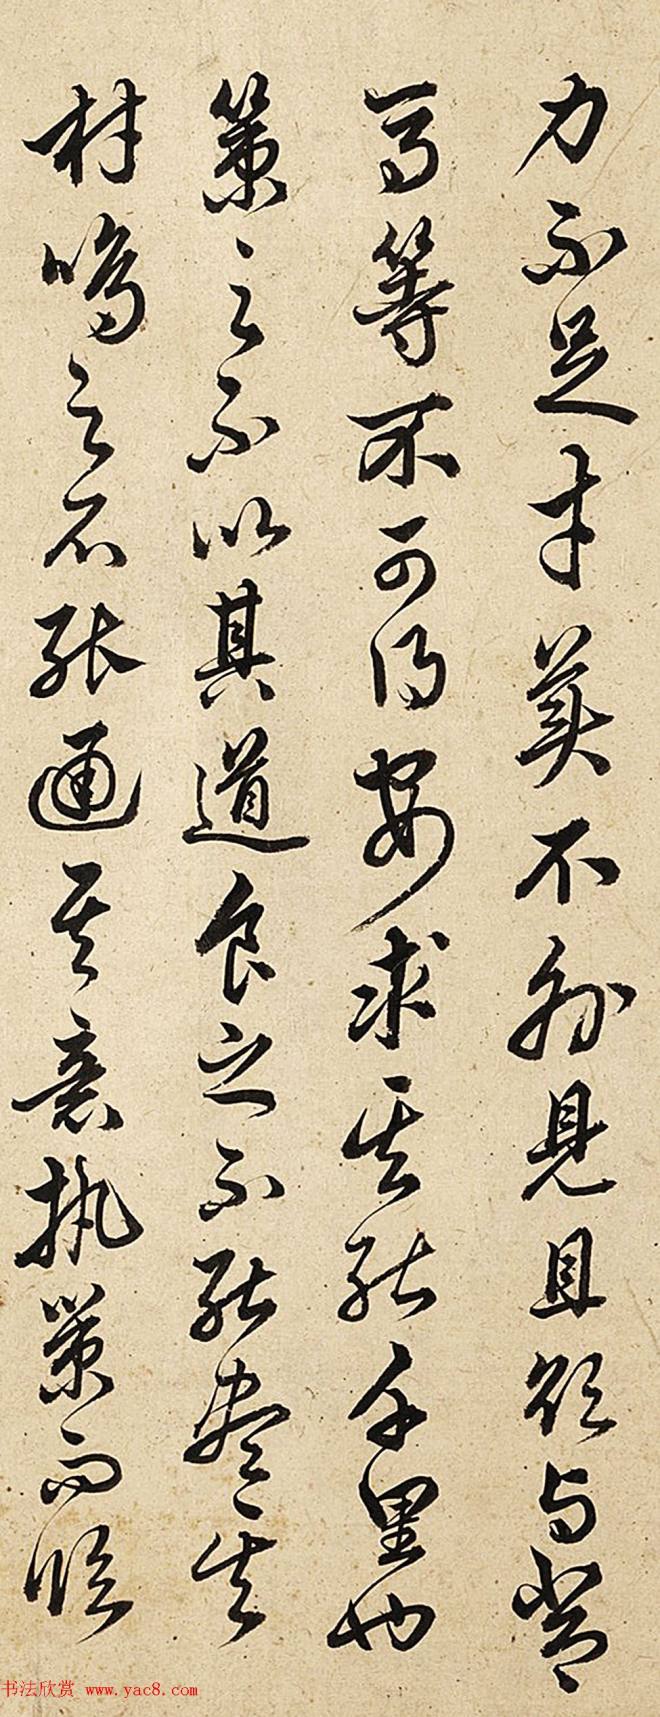 力不足才美不外見且欲与常
馬等不可得安求其能千里也
策之不以其道食之不能盡其
材鳴之不能通其意執策而臨
书法欣赏 www.yac8.com